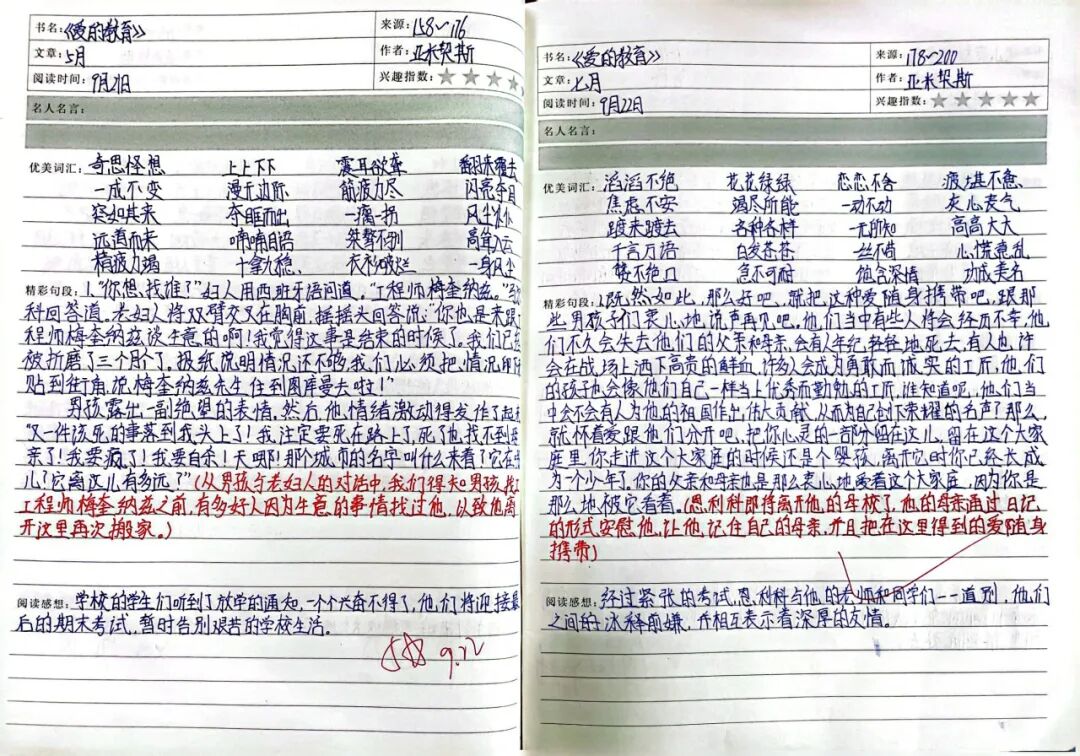 书名：《爱的教育》
来源：158～176
文章：5月
作者：亚米契斯
阅读时间：9月21日
兴趣指数：
名人名言：
优美词汇：奇思怪想 上上下下 震耳欲聋 翻来覆去
一成不变 漫无边际 筋疲力尽 闪亮夺目
突如其来 夺眶而出 一瘸一拐
远道而来 喃喃自语 桀骜不驯 高耸入云
精疲力竭 十拿九稳 衣衫破烂 一身风尘
精彩句段：1."你想找谁？"妇人用西班牙语问道。"工程师梅奎纳兹。"
科回答道。老妇人将双臂交叉在胸前，摇摇头回答说："你也是来跟
程师梅奎纳兹谈生意的啊！我觉得这事是结束的时候了。我们已
被折磨了三个月了。报纸说明情况还不够，我们必须把情况
贴到街角，说梅奎纳兹先生住到图库曼去啦！"
男孩露出一副绝望的表情。然后他情绪激动得发作了起
"又一件该死的事落到我头上了！我注定要死在路上了，死了也找不到
亲了！我要疯了！我要自杀！天哪！那个城市的名字叫什么来着？它在
儿？它离这儿有多远？"（从男孩与老妇人的对话中，我们得知男孩找
工程师梅奎纳兹之前，有多好人因为生意的事情找过他，以致他离
开这里再次搬家。）
阅读感想：学校的学生们听到了放学的通知，一个个兴奋不得了，他们将迎接最
后的期末考试，暂时告别艰苦的学校生活。
9.22
书名：《爱的教育》
来源：178～200
文章：七月
作者：亚米契斯
阅读时间：9月22日
兴趣指数：
名人名言：
优美词汇：滔滔不绝 花花绿绿 恋恋不舍 疲惫不堪
焦虑不安 竭尽所能 一动不动 衷心丧气
踱来踱去 各种各样 一无所知 高高大大
千言万语 白发苍苍 一丝不苟 心慌意乱
赞不绝口 急不可耐 饱含深情 功成美名
精彩句段：1.既然如此，那么好吧，就把这种爱随身携带吧，跟那
些男孩子们衷心地说声再见吧。他们当中有些人将会经历不幸，他
们不久会失去他们的父亲和母亲，会有人年纪轻轻地死去，有人也许
会在战场上洒下高贵的鲜血，许多人会成为勇敢而诚实的工匠，他们
的孩子也会像他们自己一样当上优秀而勤勉的工匠，谁知道呢，他们当
中会不会有人为他的祖国作出伟大贡献，从而为自己创下荣耀的名声？那么，
就怀着爱跟他们分开吧，把你心灵的一部分留在这儿，留在这个大家
庭里，你走进这个大家庭的时候还是个婴孩，离开它时你已经长成
为一个少年了，你的父亲和母亲也是那么衷心地爱着这个大家庭，因为你是
那么地被它看着。（恩利科即将离开他的母校了，他的母亲通过日记
的形式安慰他，让他记住自己的母亲，并且把在这里得到的爱随身
携带）
阅读感想：经过紧张的考试，恩利科与他的老师和同学们一一道别，他们
之间的冰释前嫌，并相互表示着深厚的友情。